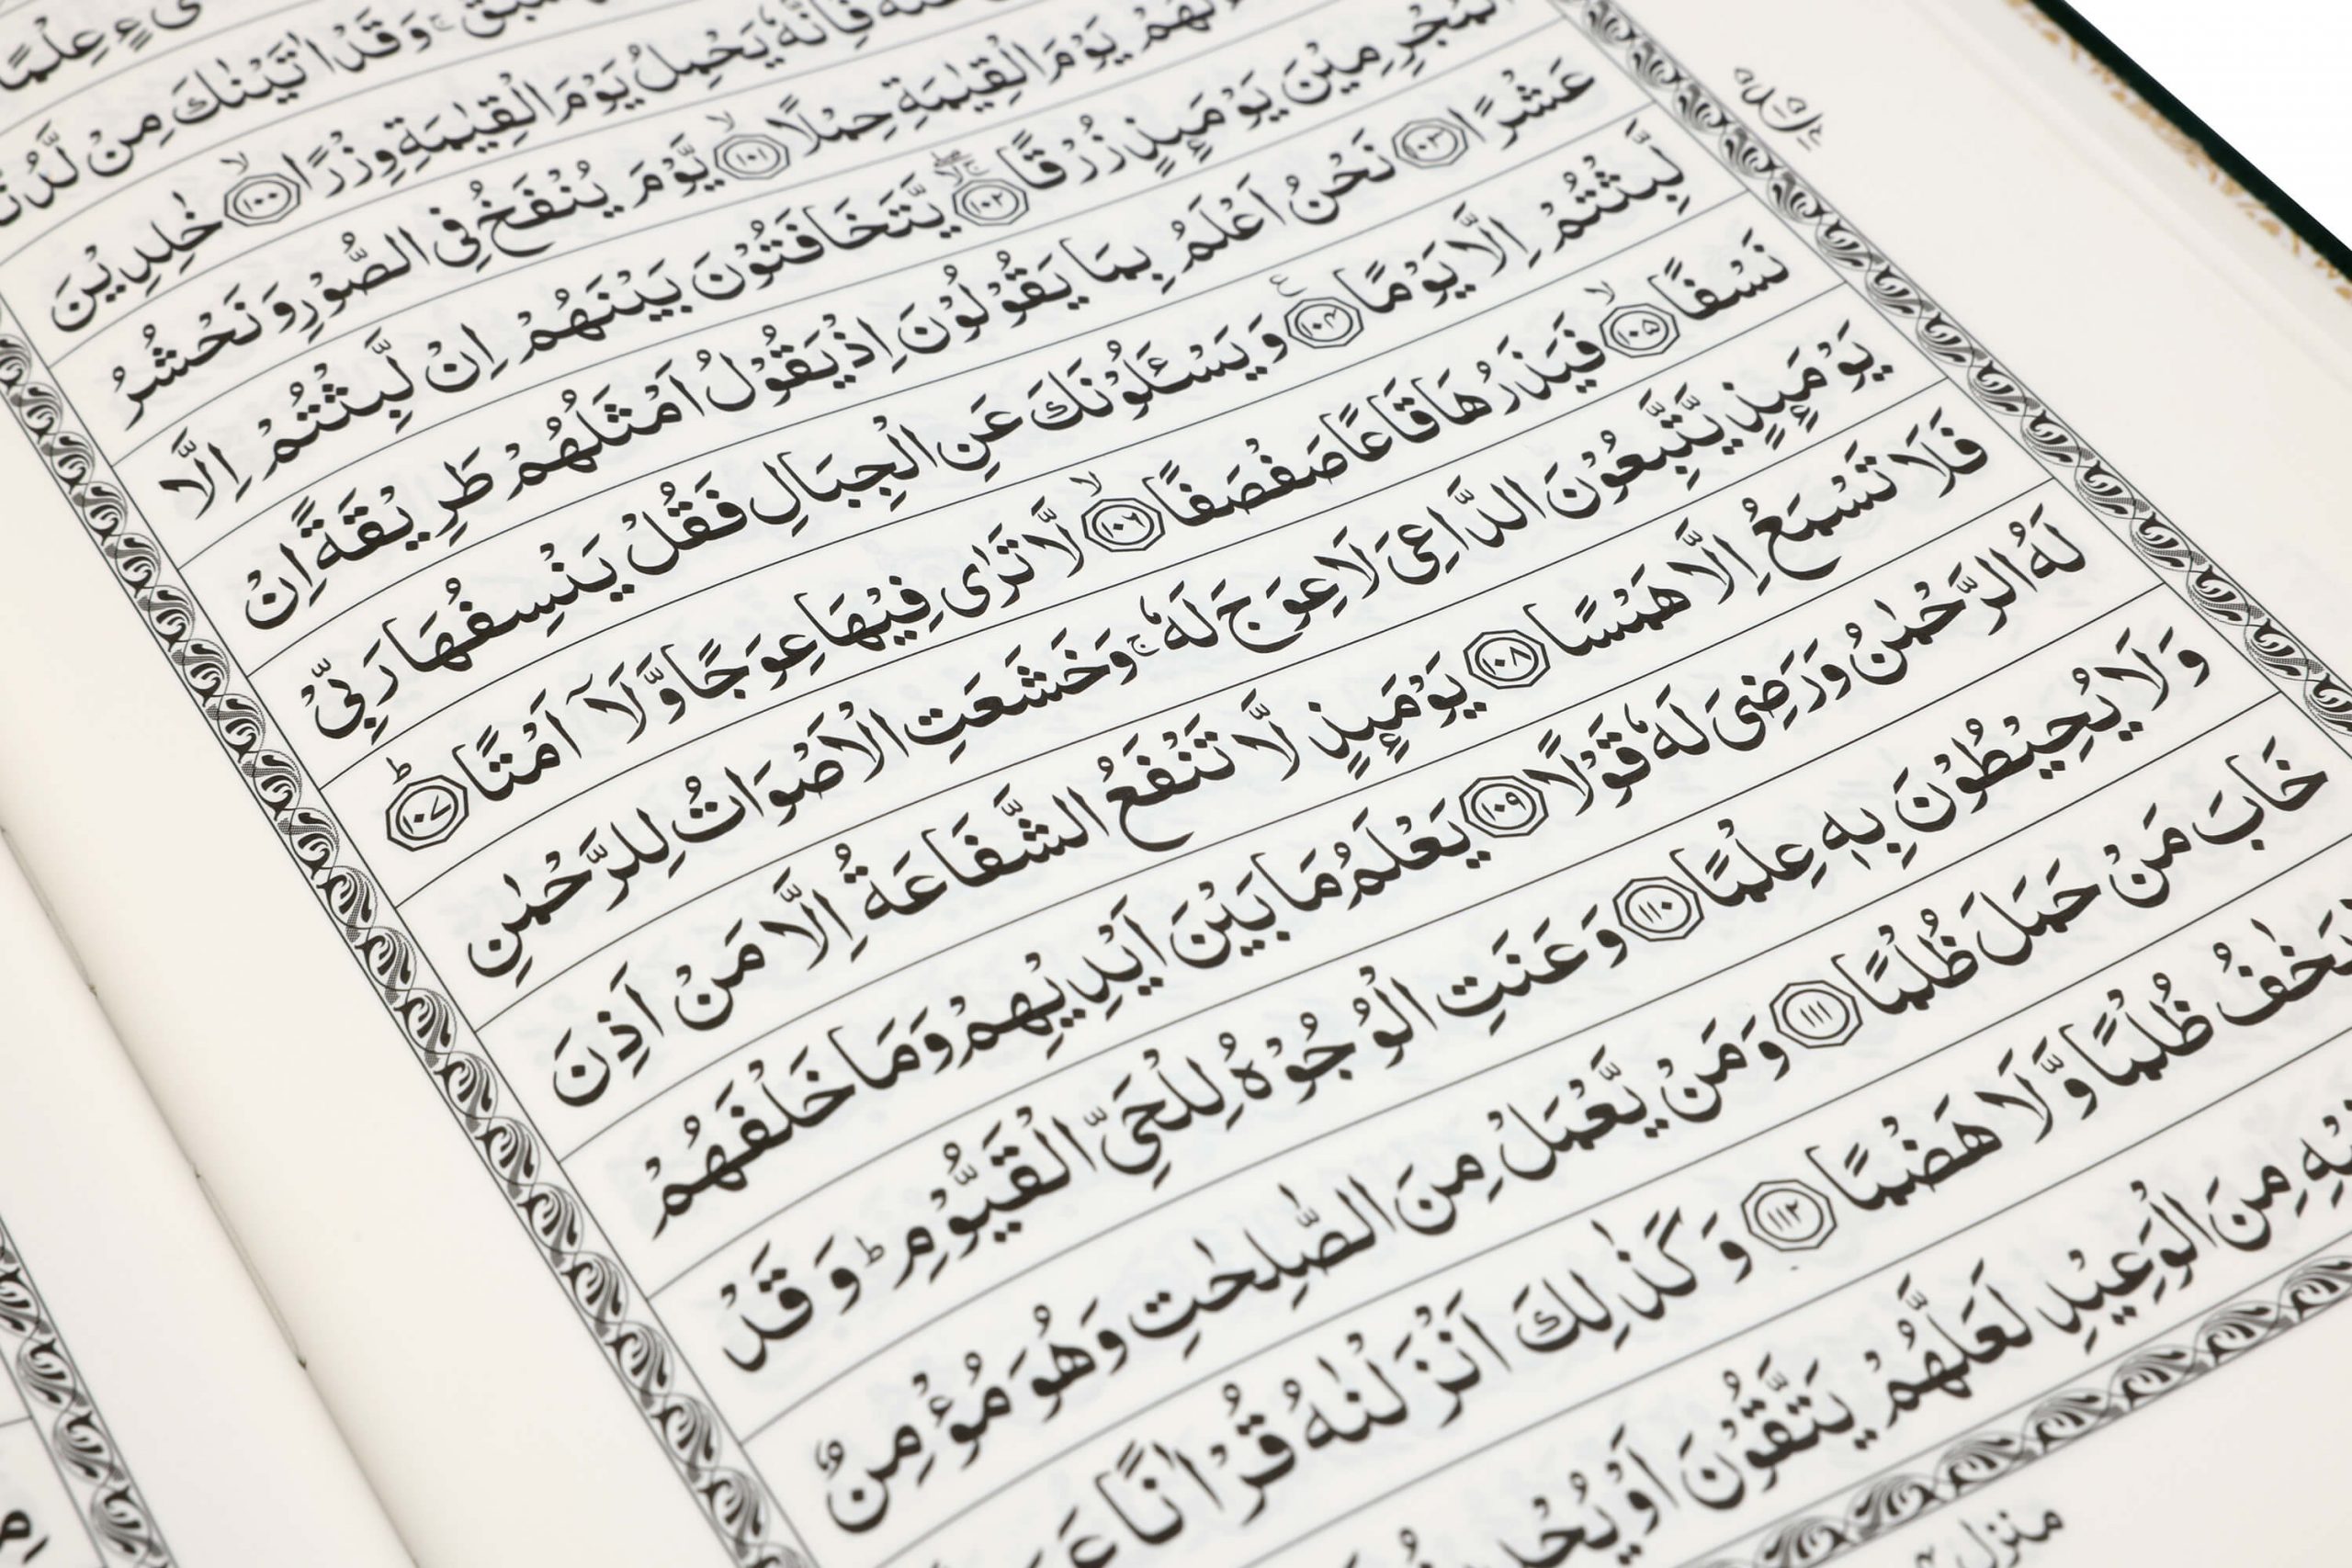 ىْءٍ عِلْمًا
سَبَقَ ۚ وَقَدْ اٰتَيْنٰكَ مِنْ لَّدُنَّا
فَاِنَّهٗ يَحْمِلُ يَوْمَ الْقِيٰمَةِ وِزْرًا ۙ‏﴿۱۰۰﴾ خٰلِدِيْنَ
لَهُمْ يَوْمَ الْقِيٰمَةِ حِمْلًا ۙ‏﴿۱۰۱﴾ يَّوْمَ يُنْفَخُ فِى الصُّوْرِ وَنَحْشُرُ
الْمُجْرِمِيْنَ يَوْمَىِٕذٍ زُرْقًا ‏﴿۱۰۲﴾ يَّتَخَافَتُوْنَ بَيْنَهُمْ اِنْ لَّبِثْتُمْ اِلَّا
عَشْرًا ‏﴿۱۰۳﴾ نَحْنُ اَعْلَمُ بِمَا يَقُوْلُوْنَ اِذْ يَقُوْلُ اَمْثَلُهُمْ طَرِيْقَةً اِنْ
لَّبِثْتُمْ اِلَّا يَوْمًا ‏﴿۱۰۴﴾ وَيَسْـَٔلُوْنَكَ عَنِ الْجِبَالِ فَقُلْ يَنْسِفُهَا رَبِّىْ
نَسْفًا ۙ‏﴿۱۰۵﴾ فَيَذَرُهَا قَاعًا صَفْصَفًا ۙ‏﴿۱۰۶﴾ لَّا تَرٰى فِيْهَا عِوَجًا وَّلَآ اَمْتًا ؕ‏﴿۱۰۷﴾
يَوْمَىِٕذٍ يَّتَّبِعُوْنَ الدَّاعِىَ لَا عِوَجَ لَهٗ ۚ وَخَشَعَتِ الْاَصْوَاتُ لِلرَّحْمٰنِ
فَلَا تَسْمَعُ اِلَّا هَمْسًا ‏﴿۱۰۸﴾ يَوْمَىِٕذٍ لَّا تَنْفَعُ الشَّفَاعَةُ اِلَّا مَنْ اَذِنَ
لَهُ الرَّحْمٰنُ وَرَضِىَ لَهٗ قَوْلًا ‏﴿۱۰۹﴾ يَعْلَمُ مَا بَيْنَ اَيْدِيْهِمْ وَمَا خَلْفَهُمْ
وَلَا يُحِيْطُوْنَ بِهٖ عِلْمًا ‏﴿۱۱۰﴾ وَعَنَتِ الْوُجُوْهُ لِلْحَىِّ الْقَيُّوْمِ ؕ وَقَدْ
خَابَ مَنْ حَمَلَ ظُلْمًا ‏﴿۱۱۱﴾ وَمَنْ يَّعْمَلْ مِنَ الصّٰلِحٰتِ وَهُوَ مُؤْمِنٌ
يَخٰفُ ظُلْمًا وَّلَا هَضْمًا ‏﴿۱۱۲﴾ وَكَذٰلِكَ اَنْزَلْنٰهُ قُرْاٰنًا
مِنَ الْوَعِيْدِ لَعَلَّهُمْ يَتَّقُوْنَ اَوْ يُحْدِ
منزل